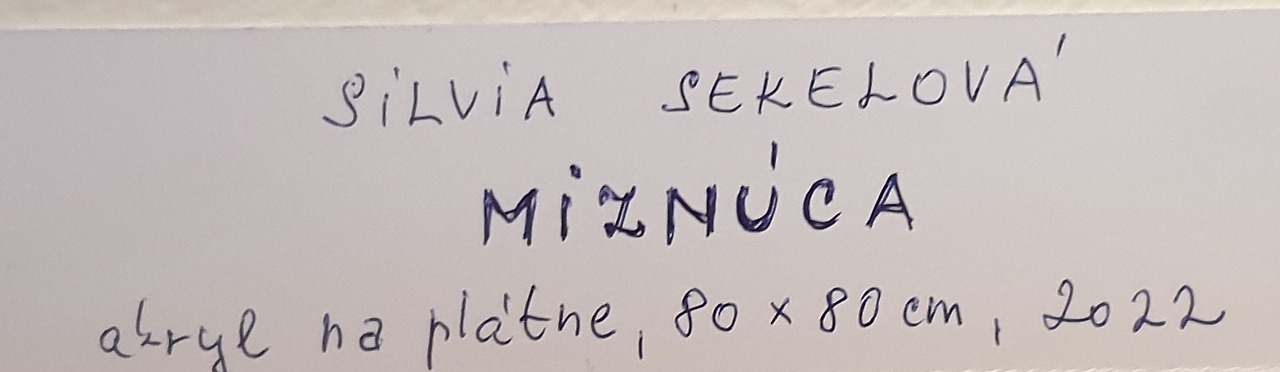 SiLViA SEKELOVÁ
MiZNÚCA
akryl na plátne, 80 x 80 cm, 2022